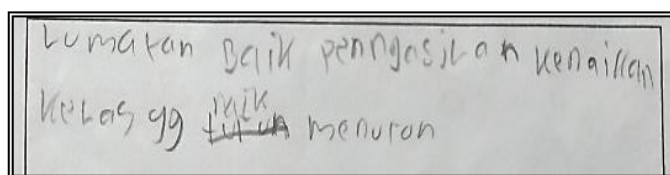 Lumaran Baik penngasilan kenaikan
Kelas yg naik menuron